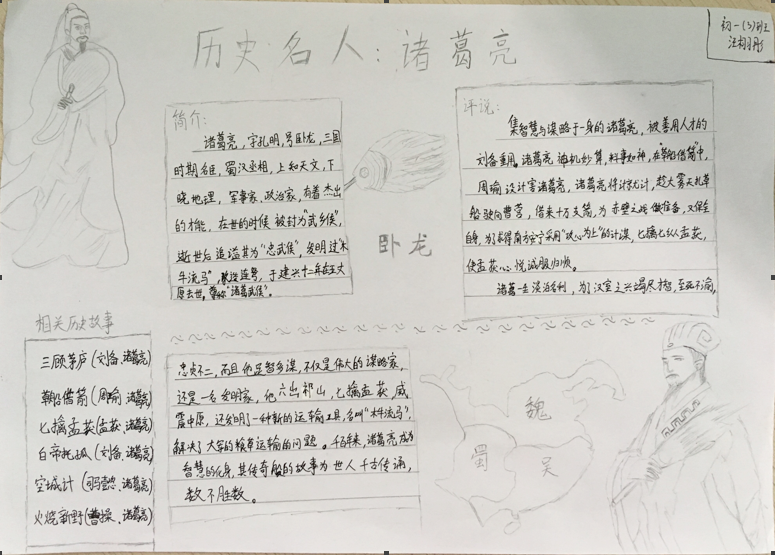 历史名人：诸葛亮
初一(3)班
汪栩彤
简介：
诸葛亮，字孔明，号卧龙，三国
时期名臣，蜀汉丞相，上知天文，下
晓地理，军事家、政治家，有着杰出
的才能，在世的时候被封为"武乡侯"，
逝世后追谥其为"忠武侯"，发明过"木
牛流马"，改造连弩，于建兴十二年在五丈
原去世。尊称"诸葛武侯"。
卧龙
评说：
集智慧与谋略于一身的诸葛亮，被善用人才的
刘备重用。诸葛亮神机妙算，料事如神，在"草船借箭"中，
周瑜设计害诸葛亮，诸葛亮将计就计，趁大雾天扎草
船驶向曹营，借来十万支箭，为赤壁之战做准备，又保全
自身，为了求得南方安宁采用"攻心为上"的计谋，七擒七纵孟获，
使孟获心悦诚服归顺。
诸葛一生淡泊名利，为了汉室之兴竭尽才智，至死不渝，
相关历史故事
三顾茅庐(刘备、诸葛亮)
草船借箭(周瑜、诸葛亮)
七擒孟获(孟获、诸葛亮)
白帝托孤(刘备、诸葛亮)
空城计(司马懿、诸葛亮)
火烧新野(曹操、诸葛亮)
忠贞不二，而且他足智多谋，不仅是伟大的谋略家，
还是一名发明家，他六出祁山，七擒孟获，威
震中原，还发明了一种新的运输工具，名叫"木牛流马"，
解决了大军的粮草运输的问题。千百年来，诸葛亮成为
智慧的化身，其传奇般的故事为世人千古传诵，
数不胜数。
魏
蜀
吴